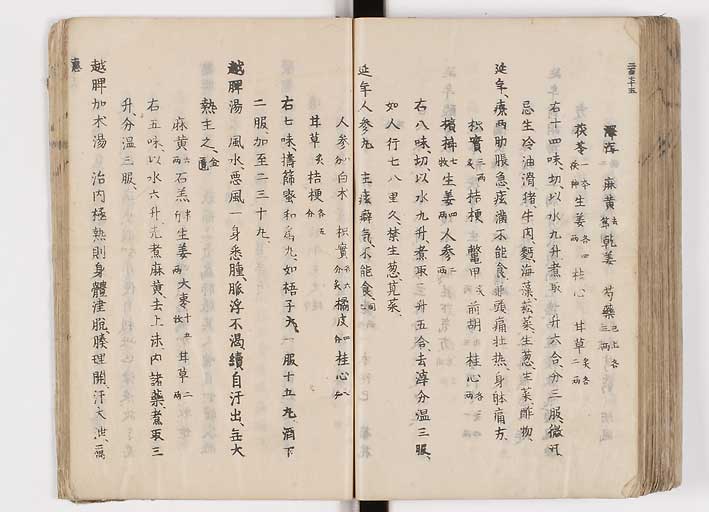 二百七十五
澤泻 麻黄去節 乾姜 芍藥已上各三兩
茯苓 生姜各四兩 桂心 甘草炙各二兩
右十四味切以水九升煮取三升六合分三服微汗
忌生冷油滑猪牛肉麵海藻菘菜生葱生菜酢物
延年療兩肋脹急痃滿不能食兼頭痛壮热身躰痛方
枳實炙三兩 桔梗 鼈甲炙 前胡 桂心各三兩
檳榔七枚 生姜四兩 人參二兩
右八味切以水九升煮取三升五合去滓分温三服
如人行七八里久禁生葱莧菜
延年人参丸 主痃癖氣不能食
人参 白术 枳實 橘皮 桂心
甘草炙 桔梗各五
右七味擣篩蜜和爲丸如梧子大一服十五丸酒下
二服加至二三十丸
越脾湯 風水悪風一身悉腫脈浮不渴續自汗出無大
熱主之 金匱
麻黄六兩 石羔半斤 生姜三兩 大棗十五枚 甘草二兩
右五味以水六升先煮麻黄去上沫内諸藥煮取三
升分温三服
越脾加术湯 治内極熱則身體津脱腠理開汗大泄